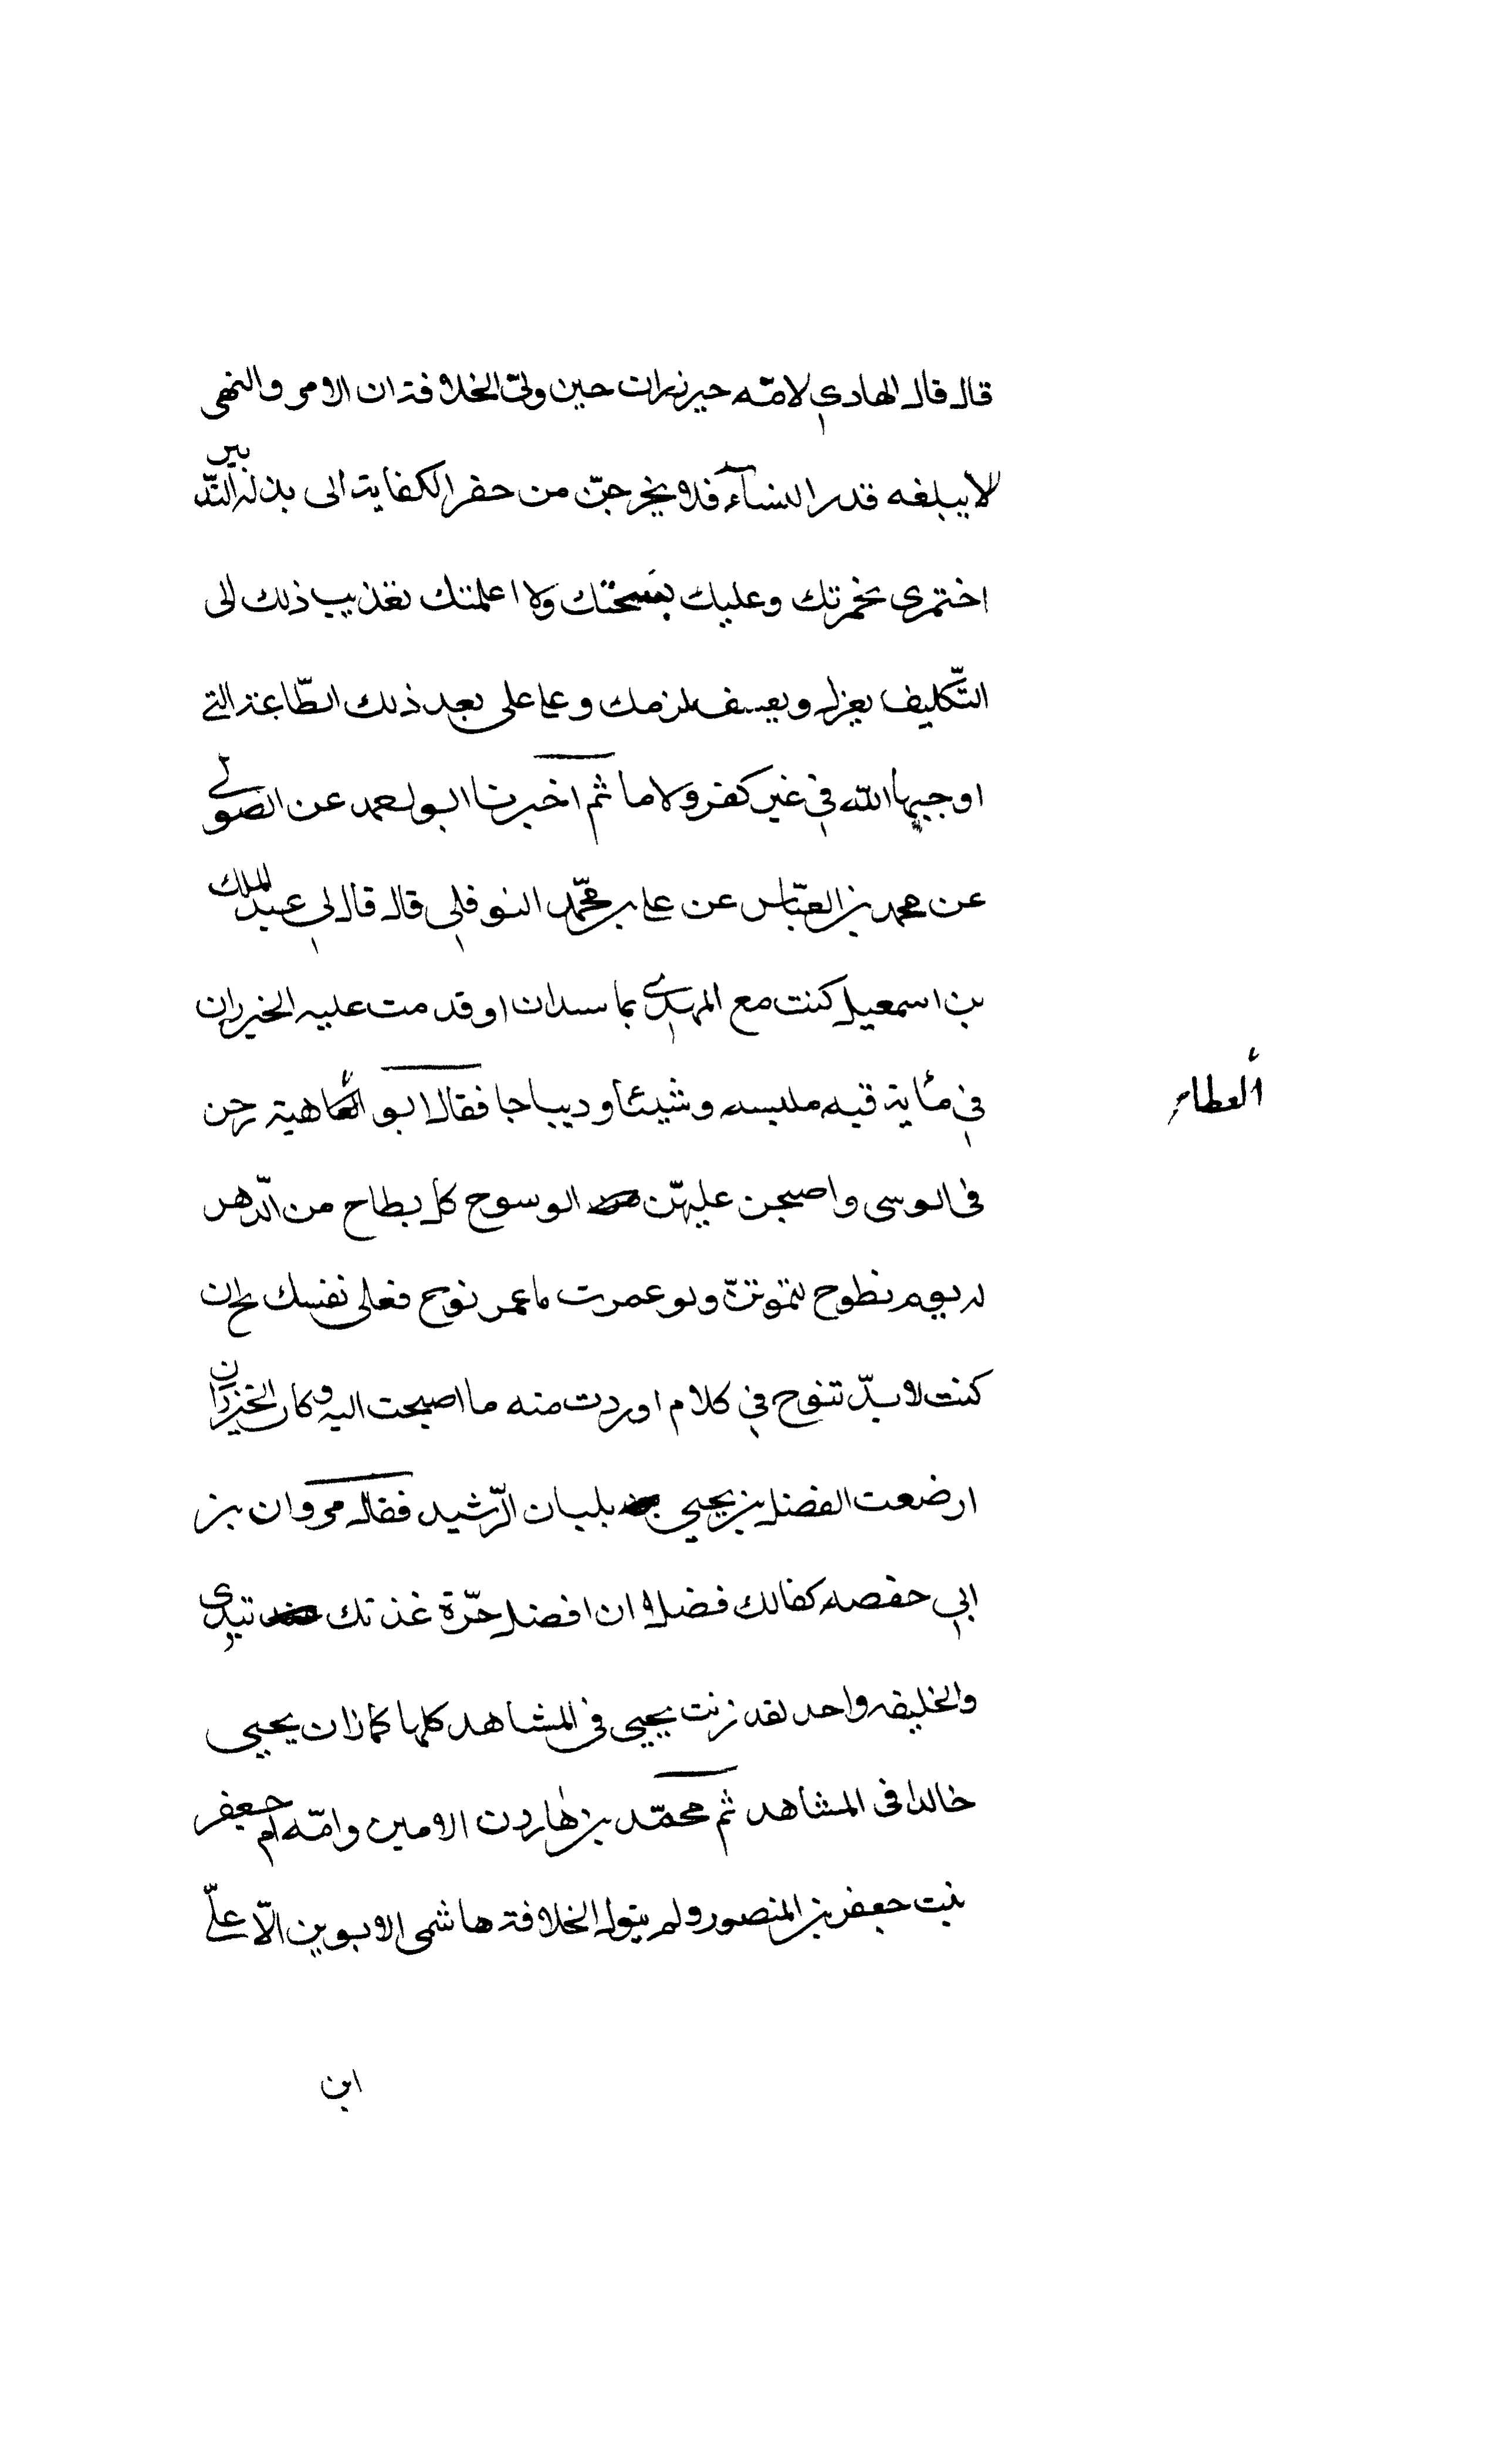 قال قال الهادي لامّه حيرنرات حين ولىّ الخلافة ان الامر والنهى
لا يبلغه قدر النسآء فلا يخرجنّ من حفر الكفاية الى بذله التّدبير
اختمرى بخمرتك وعليك بسبحتك ولا اعلمتك تعذيب ذلك الى
التّكليف بعزله وبعسف يلزمك وعلى بعد ذلك الطّاعة التي
اوجبها الله في غير كفر ولا ما ثم اخبرنا ابو احمد عن الصولي
عن محمد بن العبّاس عن على بن محمّد النوفلى قال قال لى عبد الملك
بن اسمعيل كنت مع المهدى بماسدان او قدمت عليه الخيزران
في مأية قبه ملبسه وشيئا وديباجا فقال ابو العتاهية رحن
فى الوسى واصبحن عليهّن الوسوح كل بطاح من الدّهر
له يوم نطوح لتموتنّ ولو عمرت ما عمر نوح فعلى نفسك نح ان
كنت لا بدّ تنوح في كلام اوردت منه ما اصبحت اليه وكان الخيزران
ارضعت الفضل بن يحيى بلبان الرّشيد فقال مروان بن
ابي حفصه كفالك فضلا ان افضل حرّة غذتك بثدى
والخليفه واحد لقد زنت يحيى فى المشاهد كلها كما زان يحيى
خالدا فى المشاهد ثم محمّد بن هارون الامين وامّه ام جعفر
بنت جعفر بن المنصور ولم يتول الخلافة هاشمى الابوين الّا علىّ
ابن
العطاء